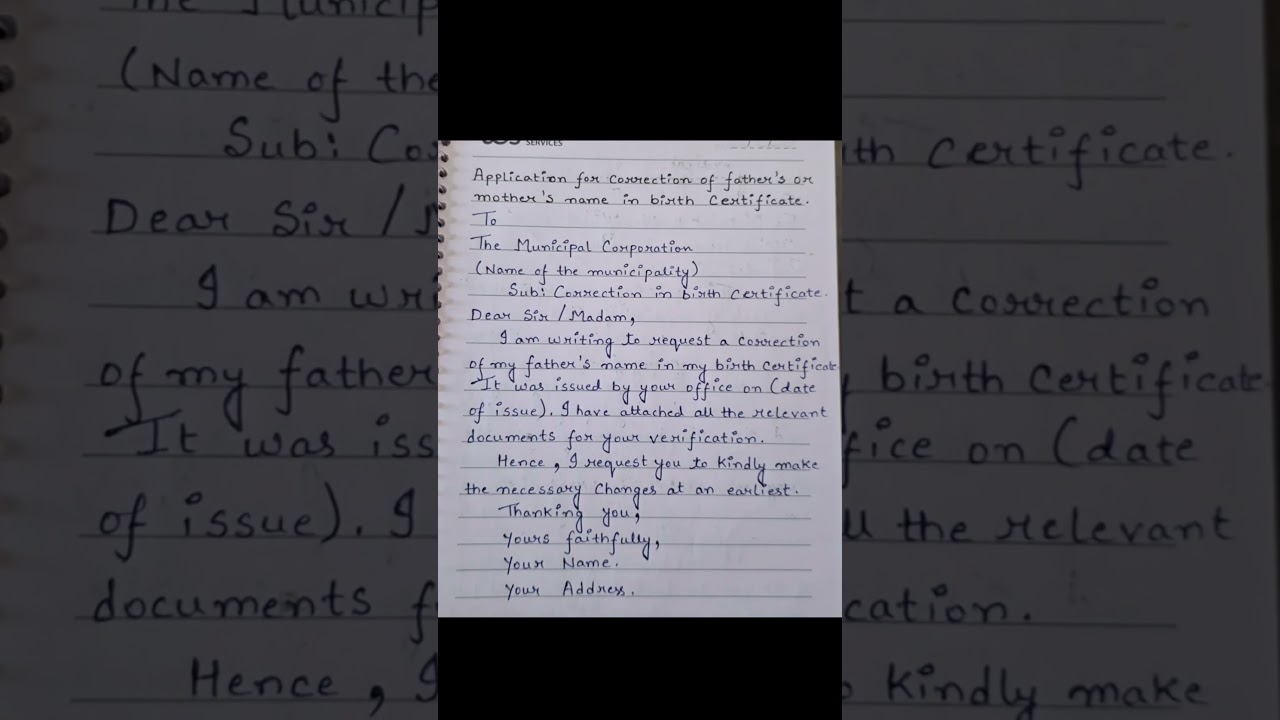 SERVICES
Application for correction of father's or
mother's name in birth certificate.
To
The Municipal Corporation
(Name of the municipality)
Sub: Correction in birth certificate.
Dear Sir / Madam,
I am writing to request a correction
of my father's name in my birth certificate
It was issued by your office on (date
of issue). I have attached all the relevant
documents for your verification.
Hence, I request you to kindly make
the necessary changes at an earliest.
Thanking you,
Yours faithfully,
Your Name.
Your Address.